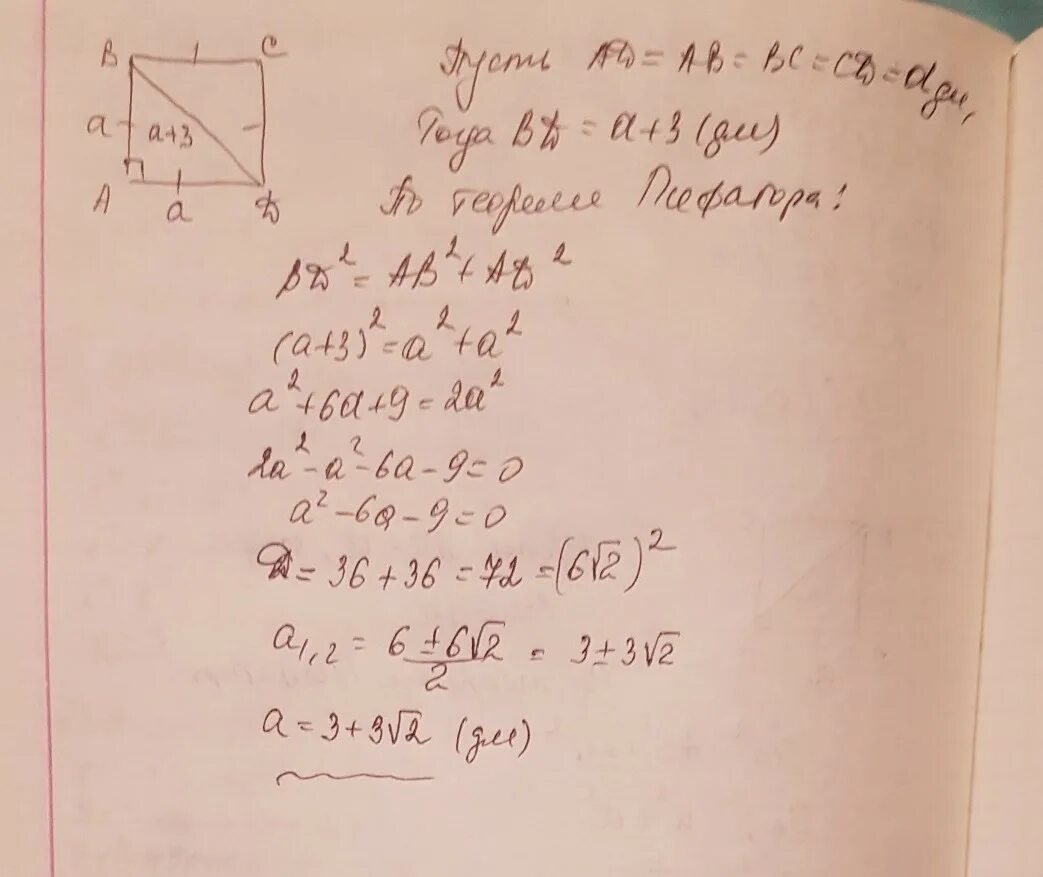 B C
Пусть AD = AB = BC = CD = a дм,
a a+3
Тогда BD = a+3 (дм)
A a D
По теореме Пифагора:
BD² = AB² + AD²
(a+3)² = a² + a²
a² + 6a + 9 = 2a²
2a² - a² - 6a - 9 = 0
a² - 6a - 9 = 0
D = 36 + 36 = 72 = (6√2)²
a₁,₂ = (6 ± 6√2)/2 = 3 ± 3√2
a = 3 + 3√2 (дм)